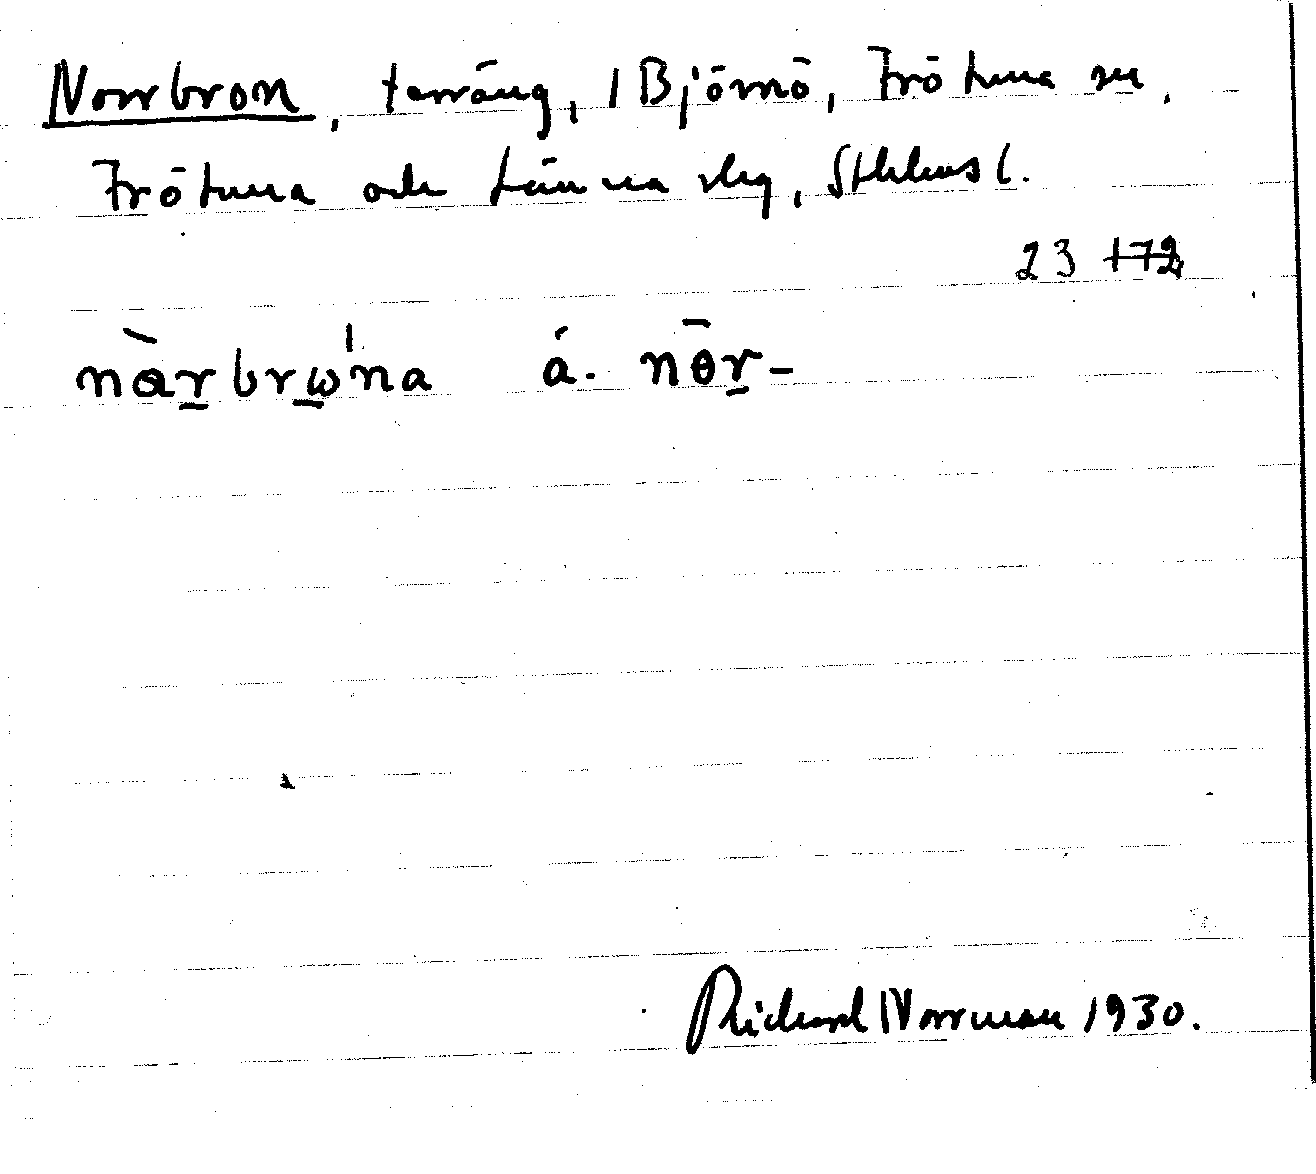 Norrbron, terräng, 1 Björnö, Frötuna sn,
Frötuna och Länna slg, Sthlms l.
23 172
nàrbrωna á. nθr-
Richard Norrman 1930.